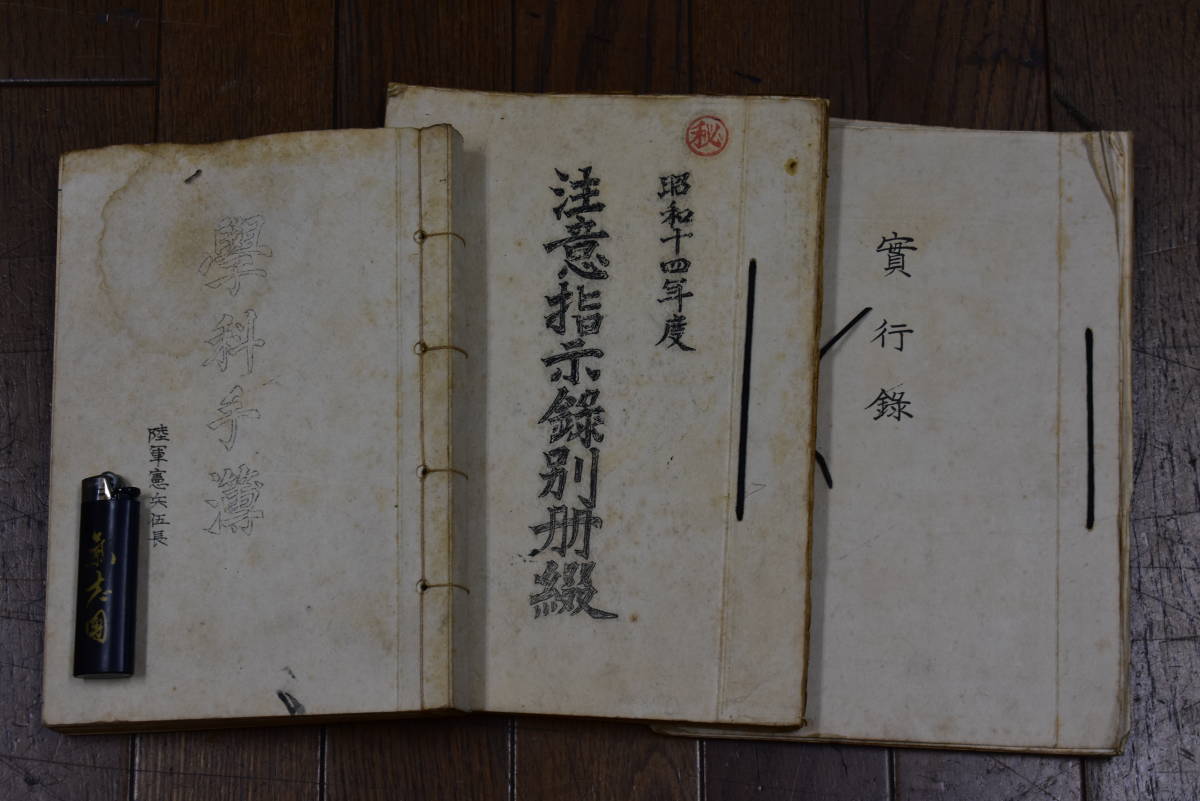 學科手簿
陸軍憲兵伍長
㊙
昭和十四年度
注意指示錄別册綴
實行錄